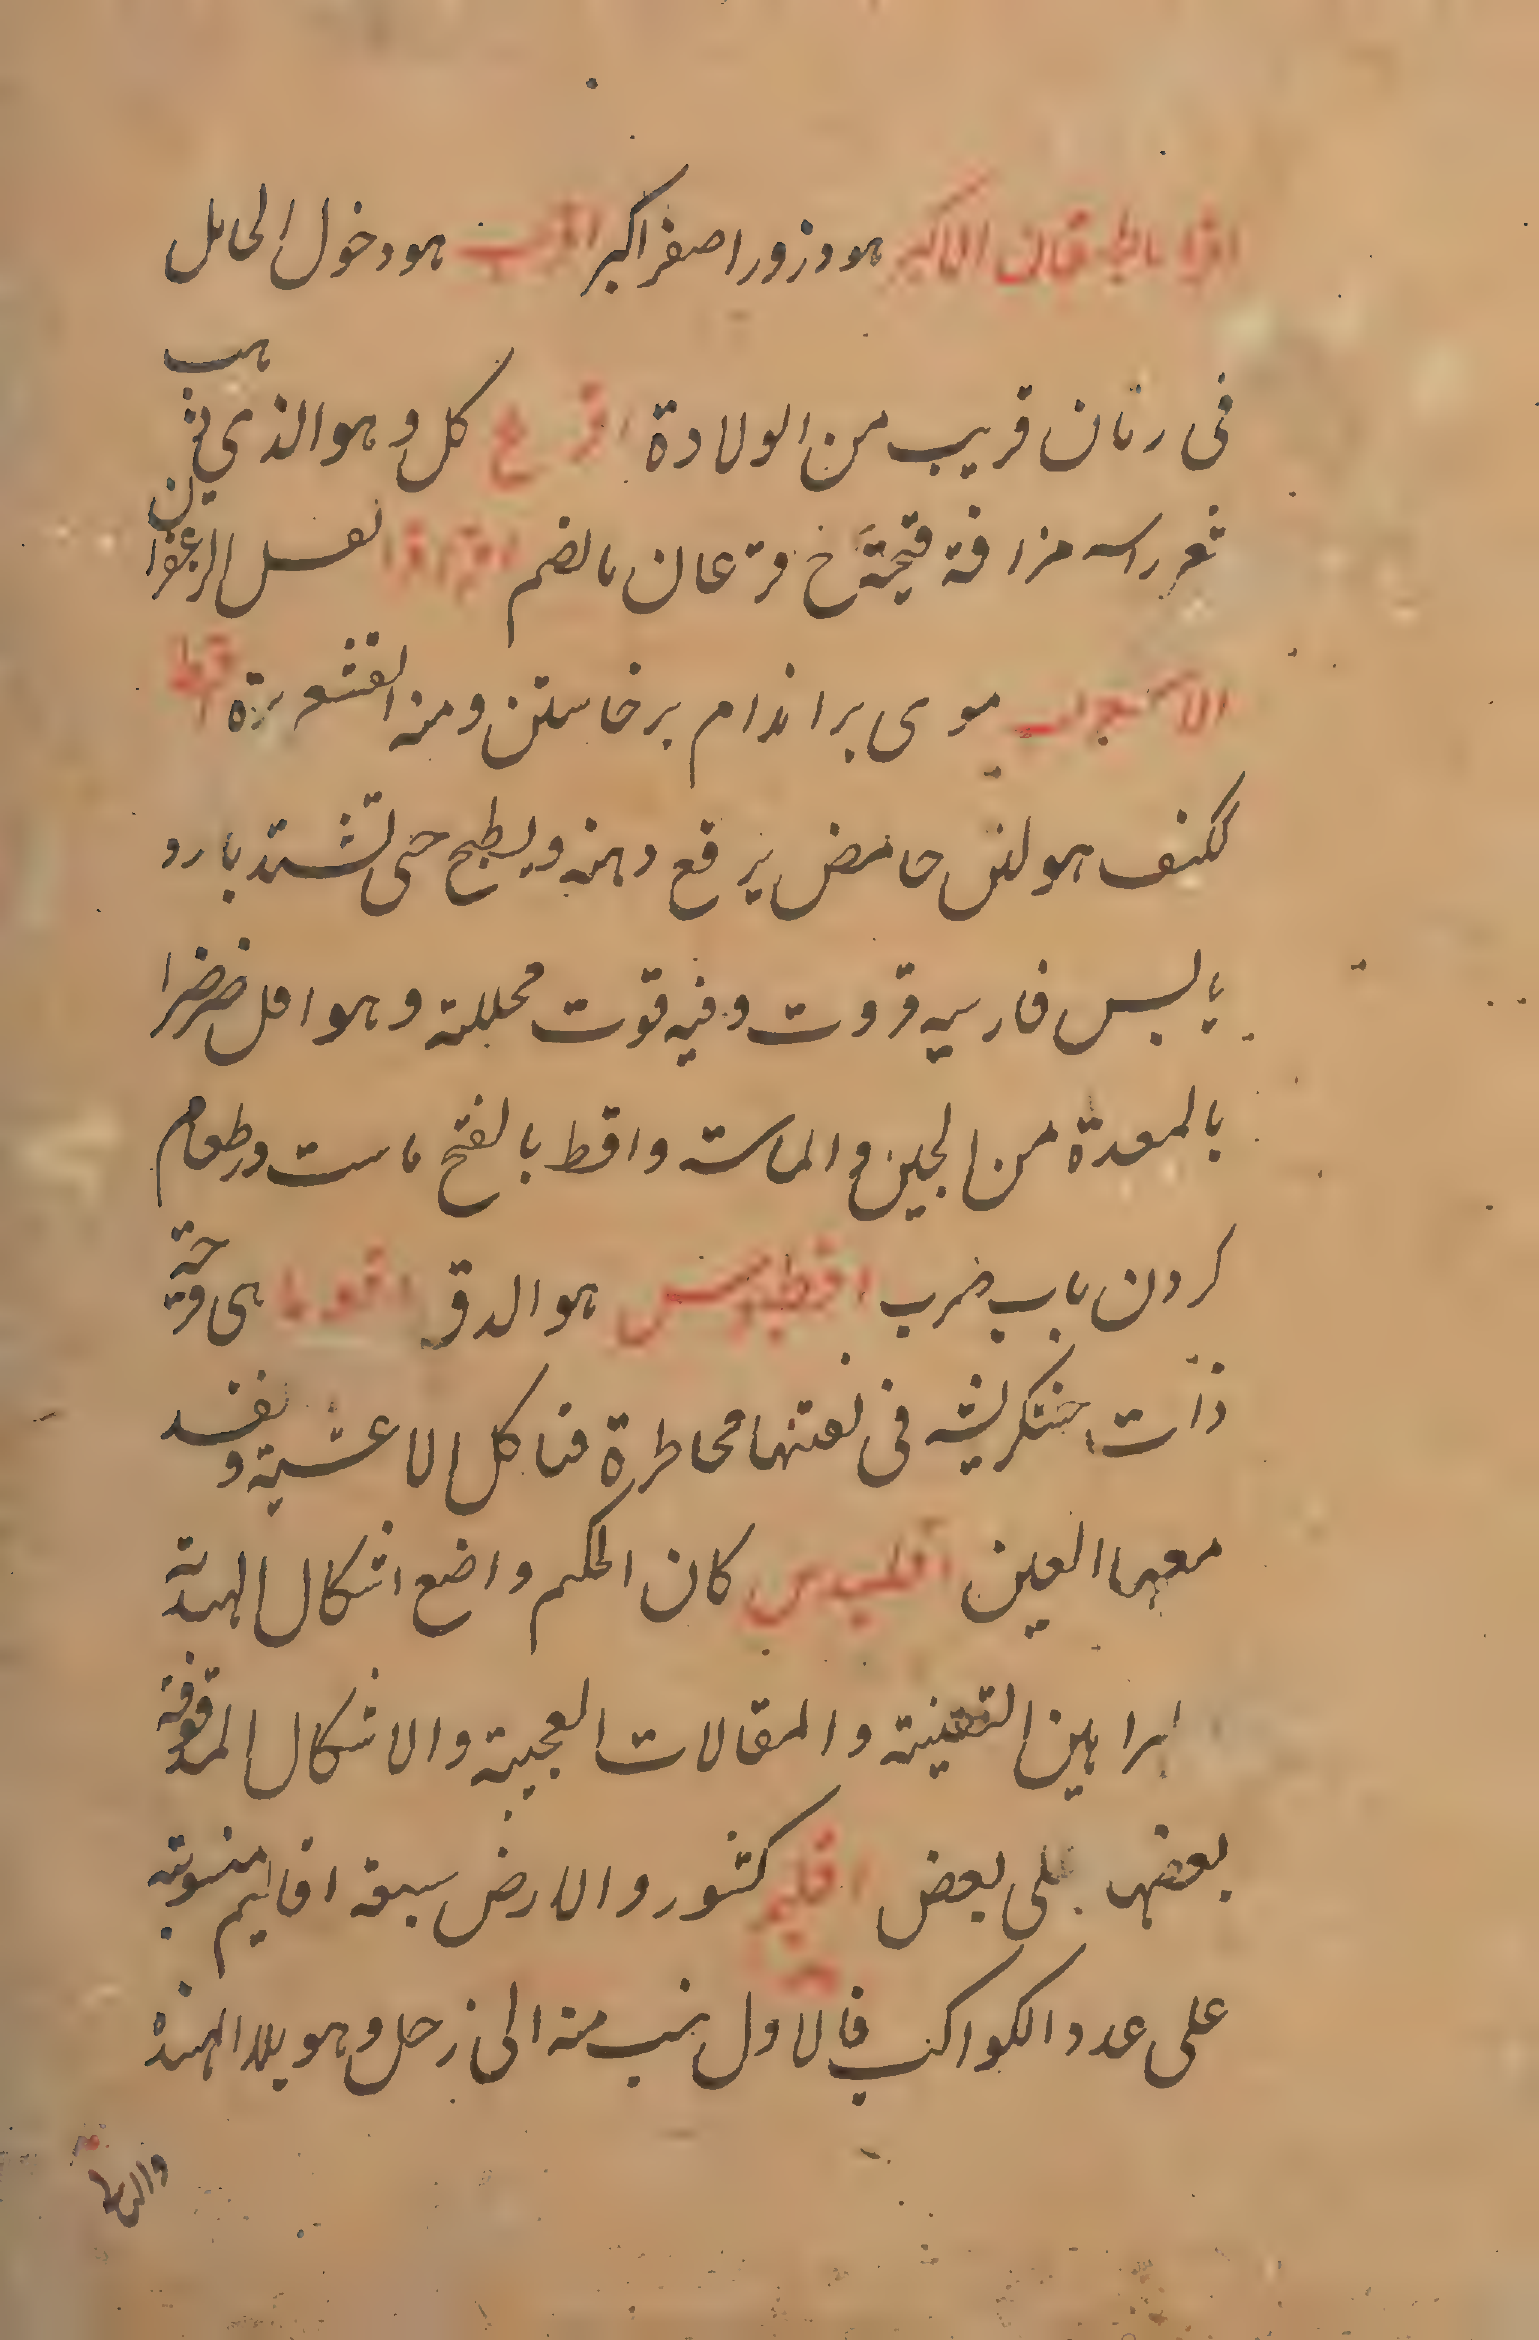 اقراباطیقان الاکبر هو دزور اصفر اکبر اقرب هو دخول الحامل
فی زمان قریب من الولادة اقرع کل و هو الذی ذهب
شعر راسه من افة قیحة ج قرعان بالضم ثفل الزعفران
موی بر اندام برخاستن و منه القشعریرة اقط
ککتف هو لبن حامض یرفع دهنه و یطبخ حتی تشتد بارد
یابس فارسیه قروت و فیه قوت محللة و هو اقل ضررا
بالمعدة من الجبن و الماست و اقط بالفتح ماست در طعام
کردن باب ضرب اقطیوس هو الدق اقوما هی قرحة
ذات خشکریشه فی تنقیتها مخاطرة فتاکل الاغشیة و تفسد
معها العین اقلیدس کان الحکیم واضع اشکال الهندسة
براهین الیقینیة و المقالات العجیبة و الاشکال الموقوفة
بعضها علی بعض اقلیم کشور و الارض سبعة اقالیم منسوبة
علی عدد الکواکب فالاول ینسب منه الی زحل و هو بلاد الهند